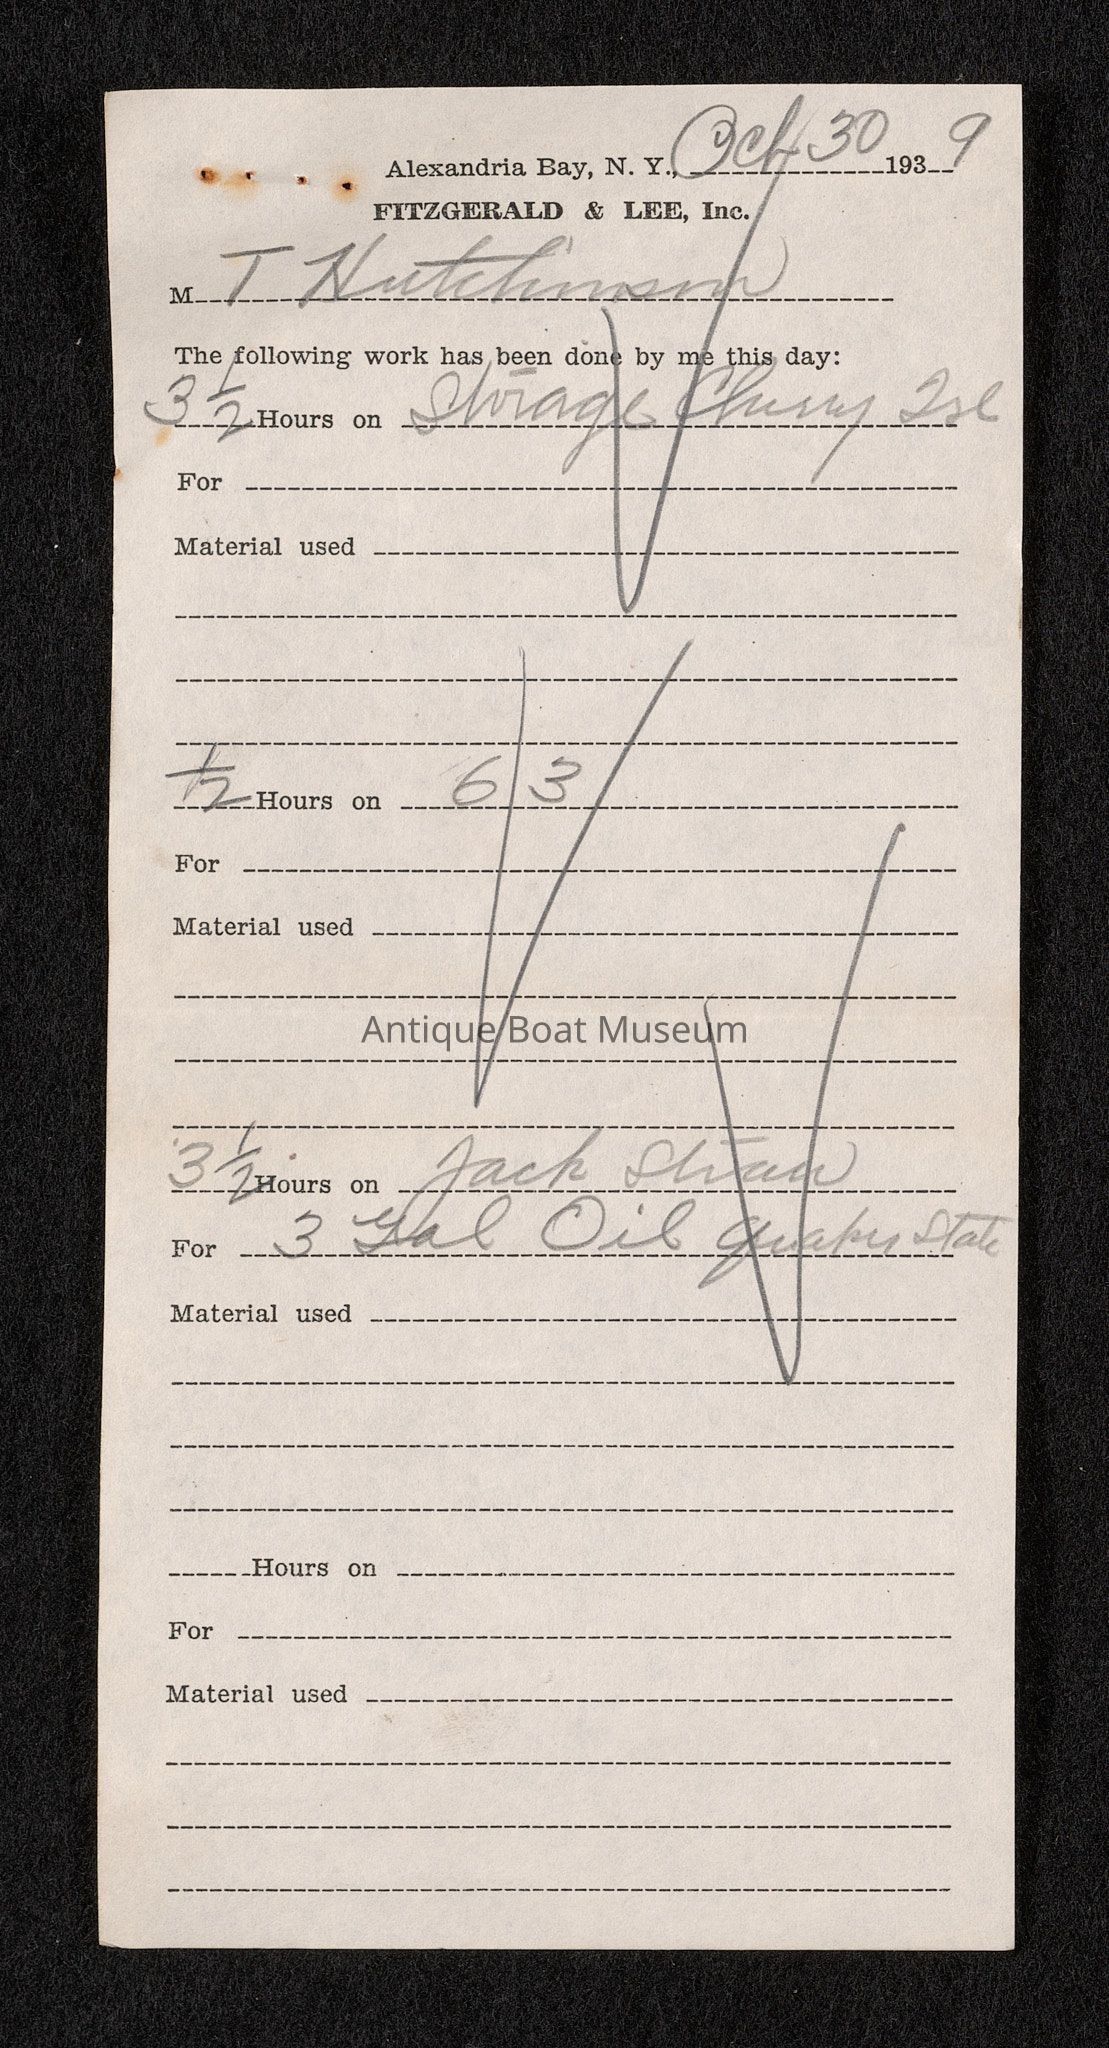 Alexandria Bay, N. Y., Oct 30 1939
FITZGERALD & LEE, Inc.
M T Hutchinson
The following work has been done by me this day:
3 1/2 Hours on Storage Cherry Isl
For
Material used
1/2 Hours on 63
For
Material used
Antique Boat Museum
3 1/2 Hours on Jack Straw
For 3 Gal Oil Quaker State
Material used
Hours on
For
Material used